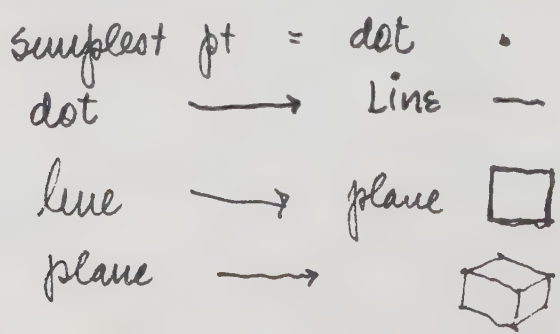 simplest pt = dot
dot → Line
line → plane
plane →